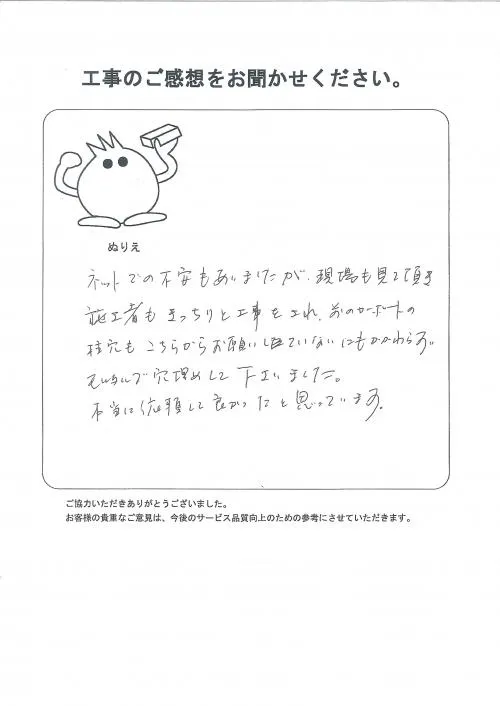 工事のご感想をお聞かせください。
ぬりえ
ネットでの不安もありましたが、現場も見て頂き
施工者もきっちりと工事をされ、前のカーポートの
柱穴もこちらからお願いしていないにもかかわらず
穴埋めして下さいました。
本当に依頼して良かったと思っています。
ご協力いただきありがとうございました。
お客様の貴重なご意見は、今後のサービス品質向上のための参考にさせていただきます。